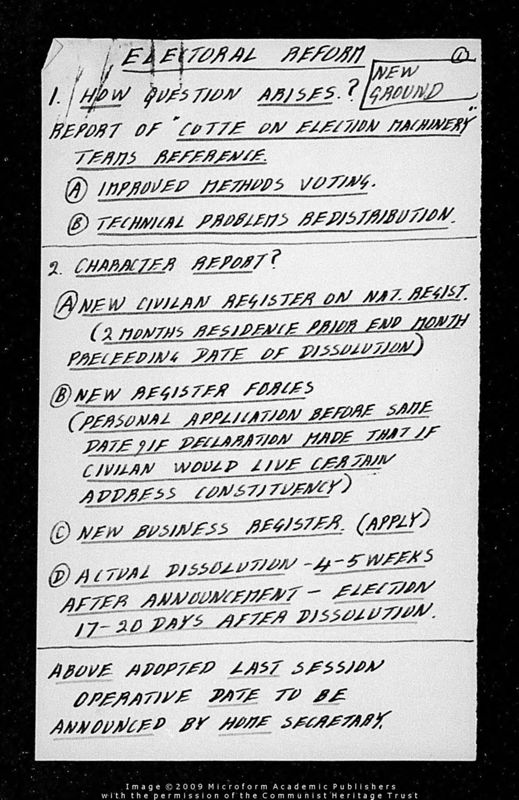 ELECTORAL REFORM ①
NEW
GROUND
1. HOW QUESTION ARISES.?
REPORT OF "CTTE ON ELECTION MACHINERY"
TERMS REFERENCE.
Ⓐ IMPROVED METHODS VOTING.
Ⓑ TECHNICAL PROBLEMS REDISTRIBUTION.
2. CHARACTER REPORT?
Ⓐ NEW CIVILAN REGISTER ON NAT. REGIST.
(2 MONTHS RESIDENCE PRIOR END MONTH
PRECEEDING DATE OF DISSOLUTION)
Ⓑ NEW REGISTER FORCES
(PERSONAL APPLICATION BEFORE SAME
DATE & IF DECLARATION MADE THAT IF
CIVILAN WOULD LIVE CERTAIN
ADDRESS CONSTITUENCY)
Ⓒ NEW BUSINESS REGISTER. (APPLY)
Ⓓ ACTUAL DISSOLUTION - 4-5 WEEKS
AFTER ANNOUNCEMENT - ELECTION
17-20 DAYS AFTER DISSOLUTION.
ABOVE ADOPTED LAST SESSION
OPERATIVE DATE TO BE
ANNOUNCED BY HOME SECRETARY.
Image ©2009 Microform Academic Publishers
with the permission of the Communist Heritage Trust